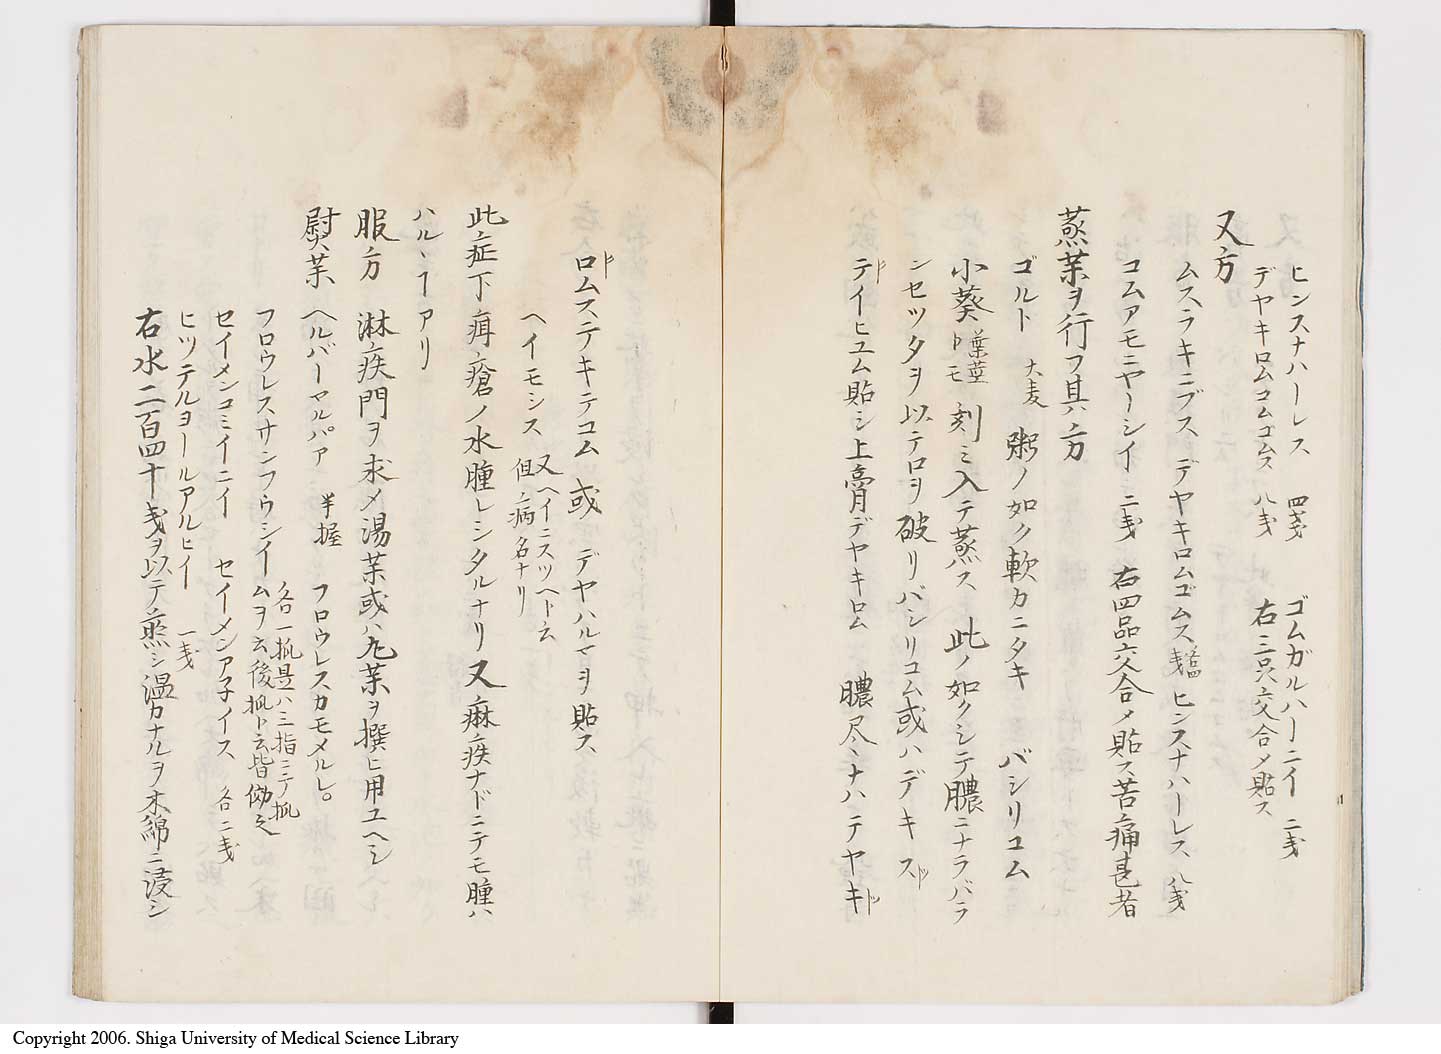 ヒンスナハーレス 四戔 ゴムガルハーニイ 二戔
デヤキロムコムゴムス 八戔 右三只交合メ貼ス
又方
ムスラキニブス デヤキロムゴムス 戔 ヒンスナハーレス 八戔
コムアモニヤーシイ 二戔 右四品交合メ貼ス苦痛甚者
蒸薬ヲ行フ其ノ方
ゴルト 大麦 粥ノ如ク軟カニタキ バシリコム
小葵 葉茎トモ 刻ミ入テ蒸ス 此ノ如クシテ膿ニナラバラ
ンセツタヲ以テロヲ破リバシリコム或ハデキスト
テイヒユム貼シ上膏デヤキロム 膿尽ミナハテヤキト
ロムステキテコム或 デヤハルマヲ貼ス
ヘイモシス 又ヘイニスツヘト云 但病名ナリ
此症下疳瘡ノ水腫レシタルナリ又痳疾ナドニテモ腫ハ
ハルヽヿアリ
服方 淋疾門ヲ求メ湯薬或ハ丸薬ヲ撰ヒ用ユヘシ
熨薬 ヘルバーマルパア 半握 フロウレスカモメルレ。
フロウレスサンフウシイ 各一抓是ハ三指ニテ抓ムヲ云後抓ト云皆倣之
セイメンコミイニイ セイーメンア子イス 各二戔
ヒツテルヨールアルヒイ 一戔
右水二百四十戔ヲ以テ煎シ温カナルヲ木綿ニ浸シ
Copyright 2006. Shiga University of Medical Science Library